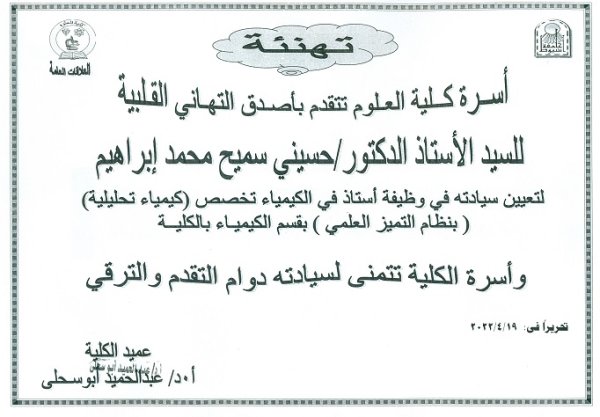 تهنئة
العلاقات العامة
أسرة كلية العلوم تتقدم بأصدق التهاني القلبية
للسيد الأستاذ الدكتور/حسيني سميح محمد إبراهيم
لتعيين سيادته في وظيفة أستاذ في الكيمياء تخصص (كيمياء تحليلية)
( بنظام التميز العلمي ) بقسم الكيمياء بالكلية
وأسرة الكلية تتمنى لسيادته دوام التقدم والترقي
تحريراً فى: ٢٠٢٢/٤/١٩
عميد الكلية
أ.د/ عبدالحميد أبوسحلى
أ.د/ عبدالحميد أبوسحلى